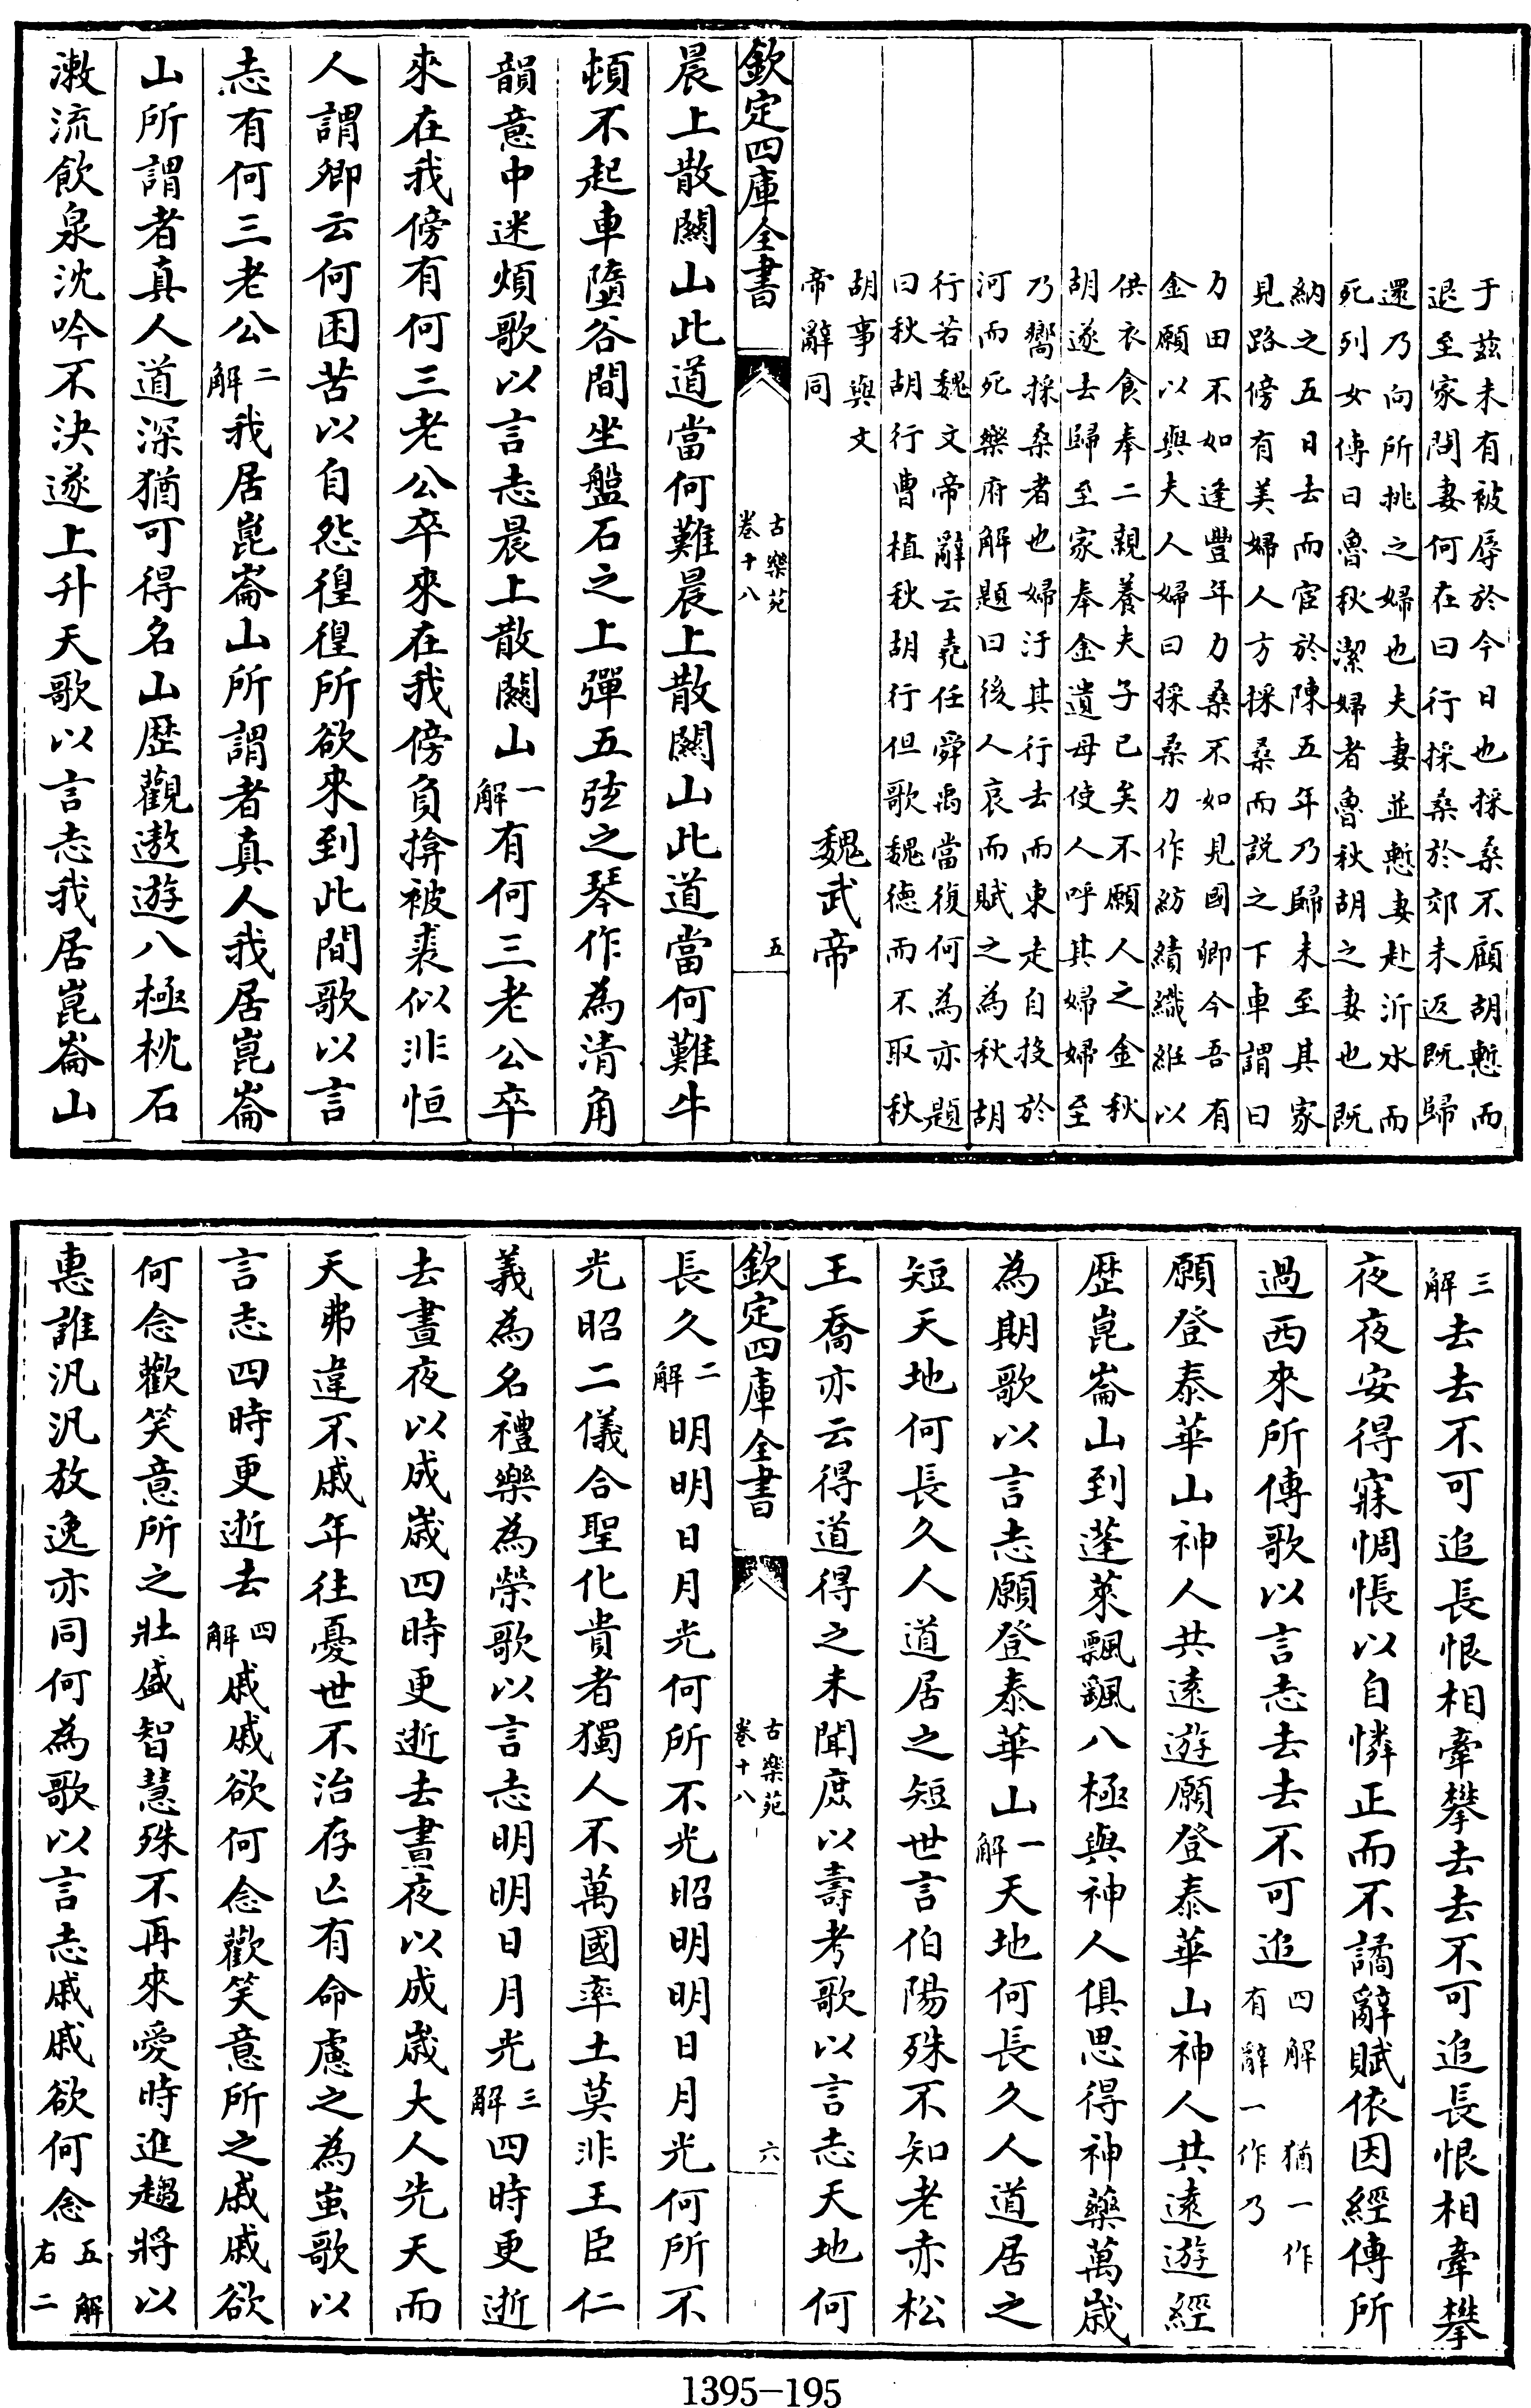 于兹未有被辱於今日也採桑不顧胡慙而
退至家問妻何在曰行採桑於郊未返既歸
還乃向所挑之婦也夫妻並慙妻赴沂水而
死列女傳曰魯秋潔婦者魯秋胡之妻也既
納之五日去而宦於陳五年乃歸未至其家
見路傍有美婦人方採桑而説之下車謂曰
力田不如逢豐年力桑不如見國卿今吾有
金願以與夫人婦曰採桑力作紡績織絍以
供衣食奉二親養夫子已矣不願人之金秋
胡遂去歸至家奉金遺母使人呼其婦婦至
乃嚮採桑者也婦汙其行去而東走自投於
河而死樂府解題曰後人哀而賦之為秋胡
行若魏文帝辭云堯任舜禹當復何為亦題
曰秋胡行曹植秋胡行但歌魏德而不取秋
胡事與文
帝辭同
魏武帝
欽定四庫全書
古樂苑
卷十八
五
晨上散關山此道當何難晨上散關山此道當何難牛
頓不起車墮谷間坐盤石之上彈五弦之琴作為清角
韻意中迷煩歌以言志晨上散關山一解有何三老公卒
來在我傍有何三老公卒來在我傍負揜被裘似非恒
人謂卿云何困苦以自怨徨徨所欲來到此間歌以言
志有何三老公二解我居崑崙山所謂者真人我居崑崙
山所謂者真人道深猶可得名山歴觀遨遊八極枕石
漱流飲泉沈吟不決遂上升天歌以言志我居崑崙山
三解去去不可追長恨相牽攀去去不可追長恨相牽攀
夜夜安得寐惆悵以自憐正而不譎辭賦依因經傳所
過西來所傳歌以言志去去不可追四解 猶一作有辭一作乃
願登泰華山神人共遠遊願登泰華山神人共遠遊經
歴崑崙山到蓬萊飄飖八極與神人俱思得神藥萬歳
為期歌以言志願登泰華山一解天地何長久人道居之
短天地何長久人道居之短世言伯陽殊不知老赤松
王喬亦云得道得之未聞庶以壽考歌以言志天地何
欽定四庫全書
古樂苑
卷十八
六
長久二解明明日月光何所不光昭明明日月光何所不
光昭二儀合聖化貴者獨人不萬國率土莫非王臣仁
義為名禮樂為榮歌以言志明明日月光三解四時更逝
去晝夜以成歳四時更逝去晝夜以成歳大人先天而
天弗違不戚年往憂世不治存亡有命慮之為蚩歌以
言志四時更逝去四解戚戚欲何念歡笑意所之戚戚欲
何念歡笑意所之壯盛智慧殊不再來愛時進趨將以
惠誰汎汎放逸亦同何為歌以言志戚戚欲何念五解右二
1395-195